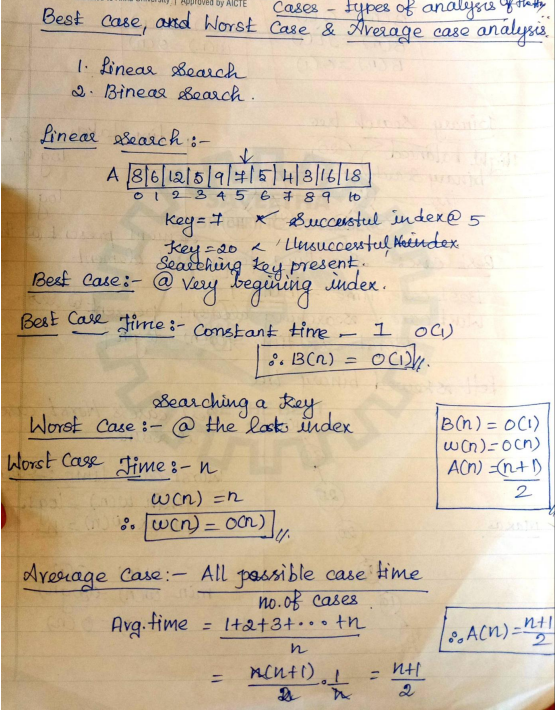 University | Approved by AICTE
Cases - types of analysis of
Best case, and Worst Case & Average case analysis.
1. Linear Search
2. Binear Search.
Linear Search :-
A |8|6|12|5|9|7|5|4|3|16|18|
0 1 2 3 4 5 6 7 8 9 10
Key=7 Successful index@ 5
Key=20 Unsuccessful, index
Searching key present.
Best Case:- @ very begining index.
Best Case Time:- constant time - 1 O(1)
∴ B(n) = O(1)
Searching a key
Worst Case:- @ the last index
Worst Case Time:- n
w(n) = n
∴ w(n) = O(n)
B(n) = O(1)
w(n) = O(n)
A(n) = (n+1)
2
Average Case:- All possible case time
no. of cases
Avg. time = 1+2+3+...+n
n
= n(n+1) . 1 = n+1
2 n 2
∴ A(n) = n+1
2